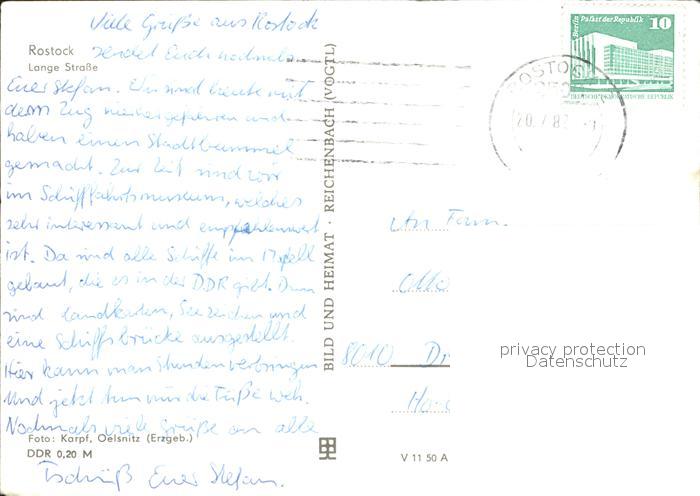 Viele Grüße aus Rostock
sendet Euch nochmals
Euer Stefan. Wir sind heute mit
dem Zug hierher gefahren und
haben einen Stadtbummel
gemacht. Zur Zeit sind wir
im Schifffahrtsmuseum, welches
sehr interessant und empfehlenswert
ist. Da sind alle Schiffe im Modell
gebaut, die es in der DDR gibt. Dann
sind Landkarten, Seezeichen und
eine Schiffsbrücke ausgestellt.
Hier kann man Stunden verbringen
Und jetzt tun mir die Füße weh.
Nochmals viele Grüße an alle
Tschüß Euer Stefan.
Rostock
Lange Straße
Foto: Karpf, Oelsnitz (Erzgeb.)
DDR 0,20 M
BILD UND HEIMAT · REICHENBACH (VOGTL)
V 11 50 A
Berlin Palast der Republik 10
DEUTSCHE DEMOKRATISCHE REPUBLIK
ROSTOC
20. 7. 8
An Fam.
8010 Dr
privacy protection
Datenschutz